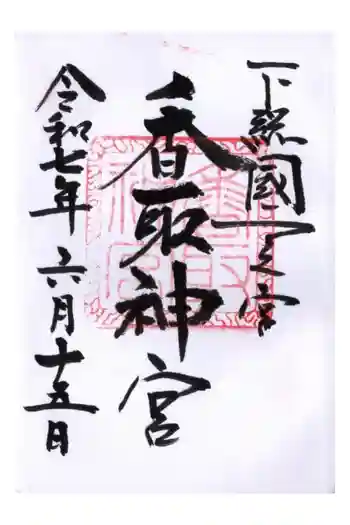 下総國一之宮
香取神宮
令和七年六月十五日